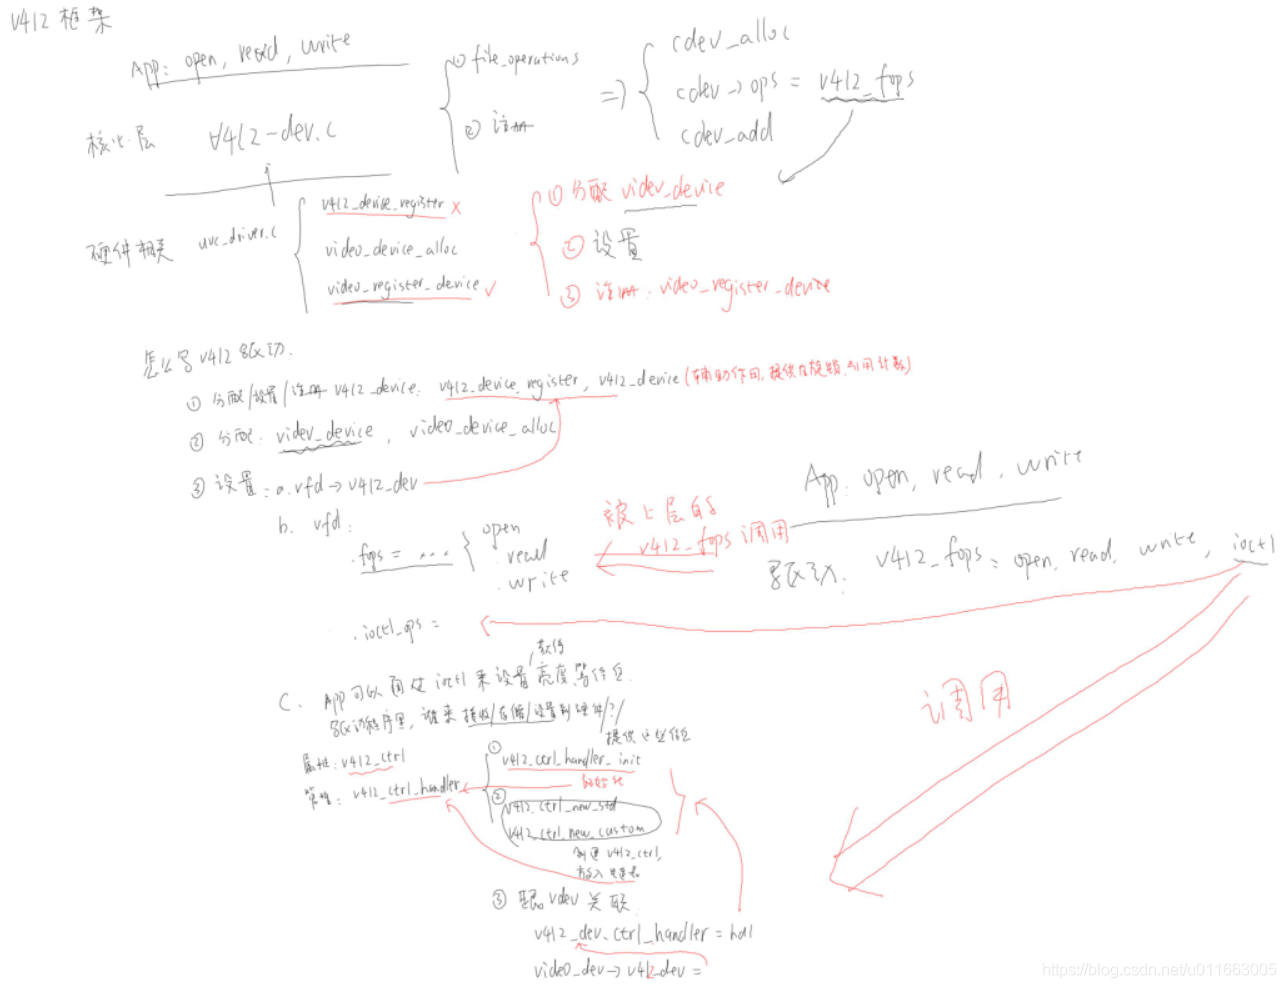 v4l2 框架
App: open, read, write
核心层 v4l2-dev.c
① file_operations
② 注册
=>
cdev_alloc
cdev->ops = v4l2_fops
cdev_add
硬件相关 uvc_driver.c
v4l2_device_register x
video_device_alloc
video_register_device √
① 分配 video_device
② 设置
③ 注册: video_register_device
怎么写 v4l2 驱动:
① 分配/设置/注册 v4l2_device: v4l2_device_register, v4l2_device (辅助作用, 提供自旋锁、引用计数)
② 分配: video_device, video_device_alloc
③ 设置: a. vfd->v4l2_dev
b. vfd:
.fops = ...
open
read
.write
.ioctl_ops =
被上层的
v4l2_fops 调用
App: open, read, write
驱动: v4l2_fops = open, read, write, ioctl
调用
C. App可以通过 ioctl 来设置, 获得 亮度等信息.
驱动程序里, 谁来接收/存储/设置到硬件/?/
提供这些信息
属性: v4l2_ctrl
管理: v4l2_ctrl_handler
① v4l2_ctrl_handler_init
初始化
② v4l2_ctrl_new_std
v4l2_ctrl_new_custom
创建 v4l2_ctrl,
放入链表
③ 跟vdev关联:
v4l2_dev.ctrl_handler = hdl
video_dev->v4l2_dev =
https://blog.csdn.net/u011663005